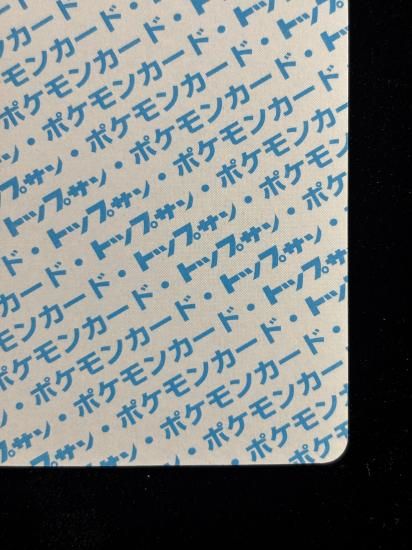 ポケモンカード・
ポケモンカード・
・ポケモンカード・
プサン・ポケモンカード・
トップサン・ポケモンカード・
トップサン・ポケモンカード
ド・トップサン・ポケモンカ
カード・トップサン・ポケ
モンカード・トップサン・
ポケモンカード・トップサン
・ポケモンカード・トッ
トップサン・ポケモンカード・
プサン・ポケモンカード
・ポケモンカ
ポケモ